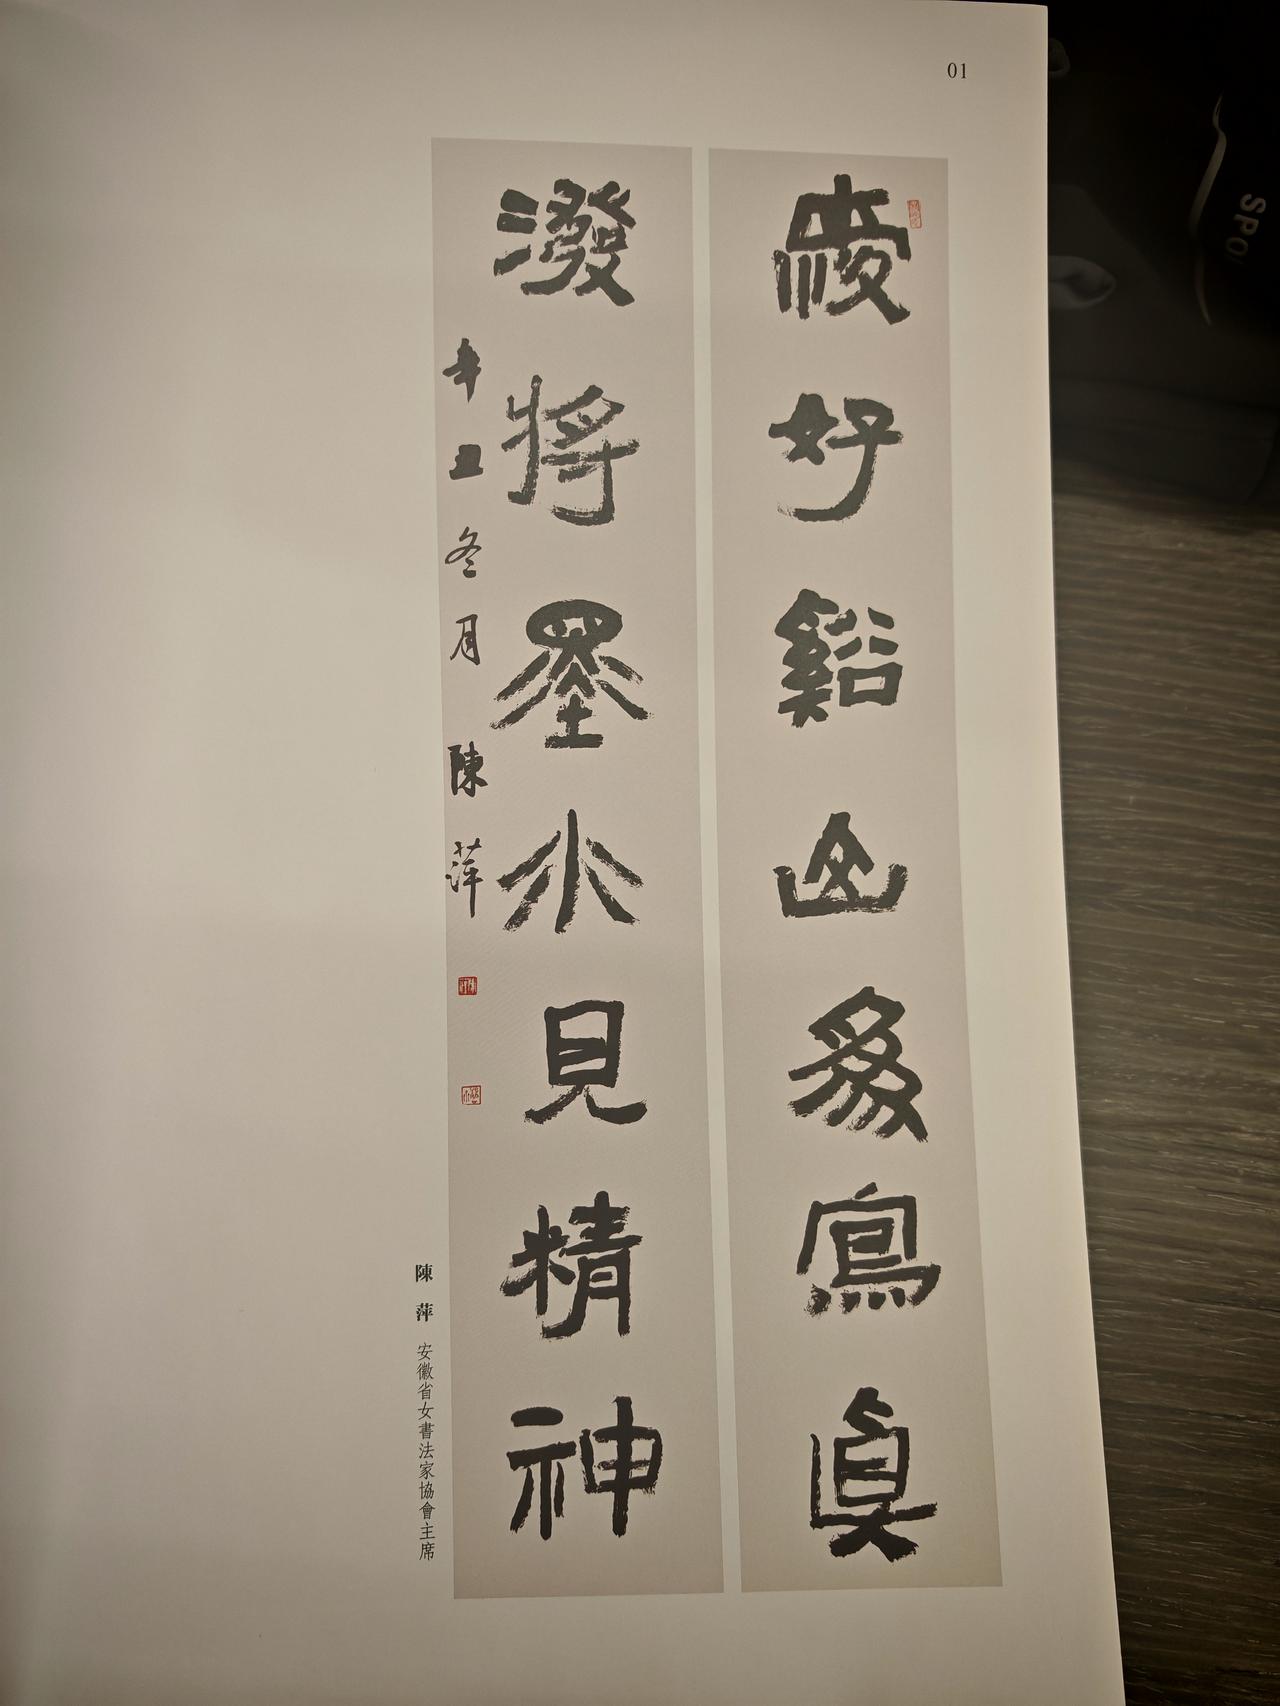 01
愛好谿山爲寫真
潑將墨水見精神
辛丑冬月 陳萍
陳萍 安徽省女書法家協會主席
SPO